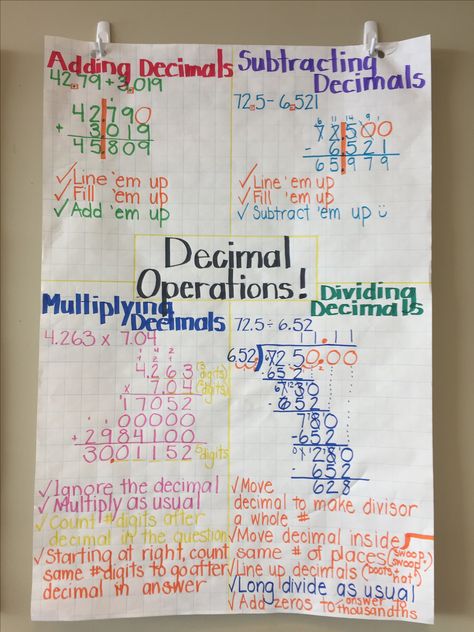 Adding Decimals
42.79 + 3.019
42.790
+ 3.019
45.809
✓ Line 'em up
✓ Fill 'em up
✓ Add 'em up
Subtracting
Decimals
72.5 - 6.521
72.500
- 6.521
65.979
✓ Line 'em up
✓ Fill 'em up
✓ Subtract 'em up
Decimal
Operations!
Multiplying
Decimals
4.263 x 7.04
4.263 (3 digits)
x 7.04 (2 digits)
17052
00000
+ 2984100
30.01152 5 digits
✓ Ignore the decimal
✓ Multiply as usual
✓ Count # digits after
decimal in the question
✓ Starting at right, count
same # digits to go after
decimal in answer
Dividing
Decimals
72.5 ÷ 6.52
11.11
6.52 72 50.00
- 652
730
- 652
780
- 652
1280
- 652
628
✓ Move
decimal to make divisor
a whole #
✓ Move decimal inside
same # of places (swoop, swoop)
✓ Line up decimals (boots + hat)
✓ Long divide as usual
✓ Add zeros to answer to thousandths